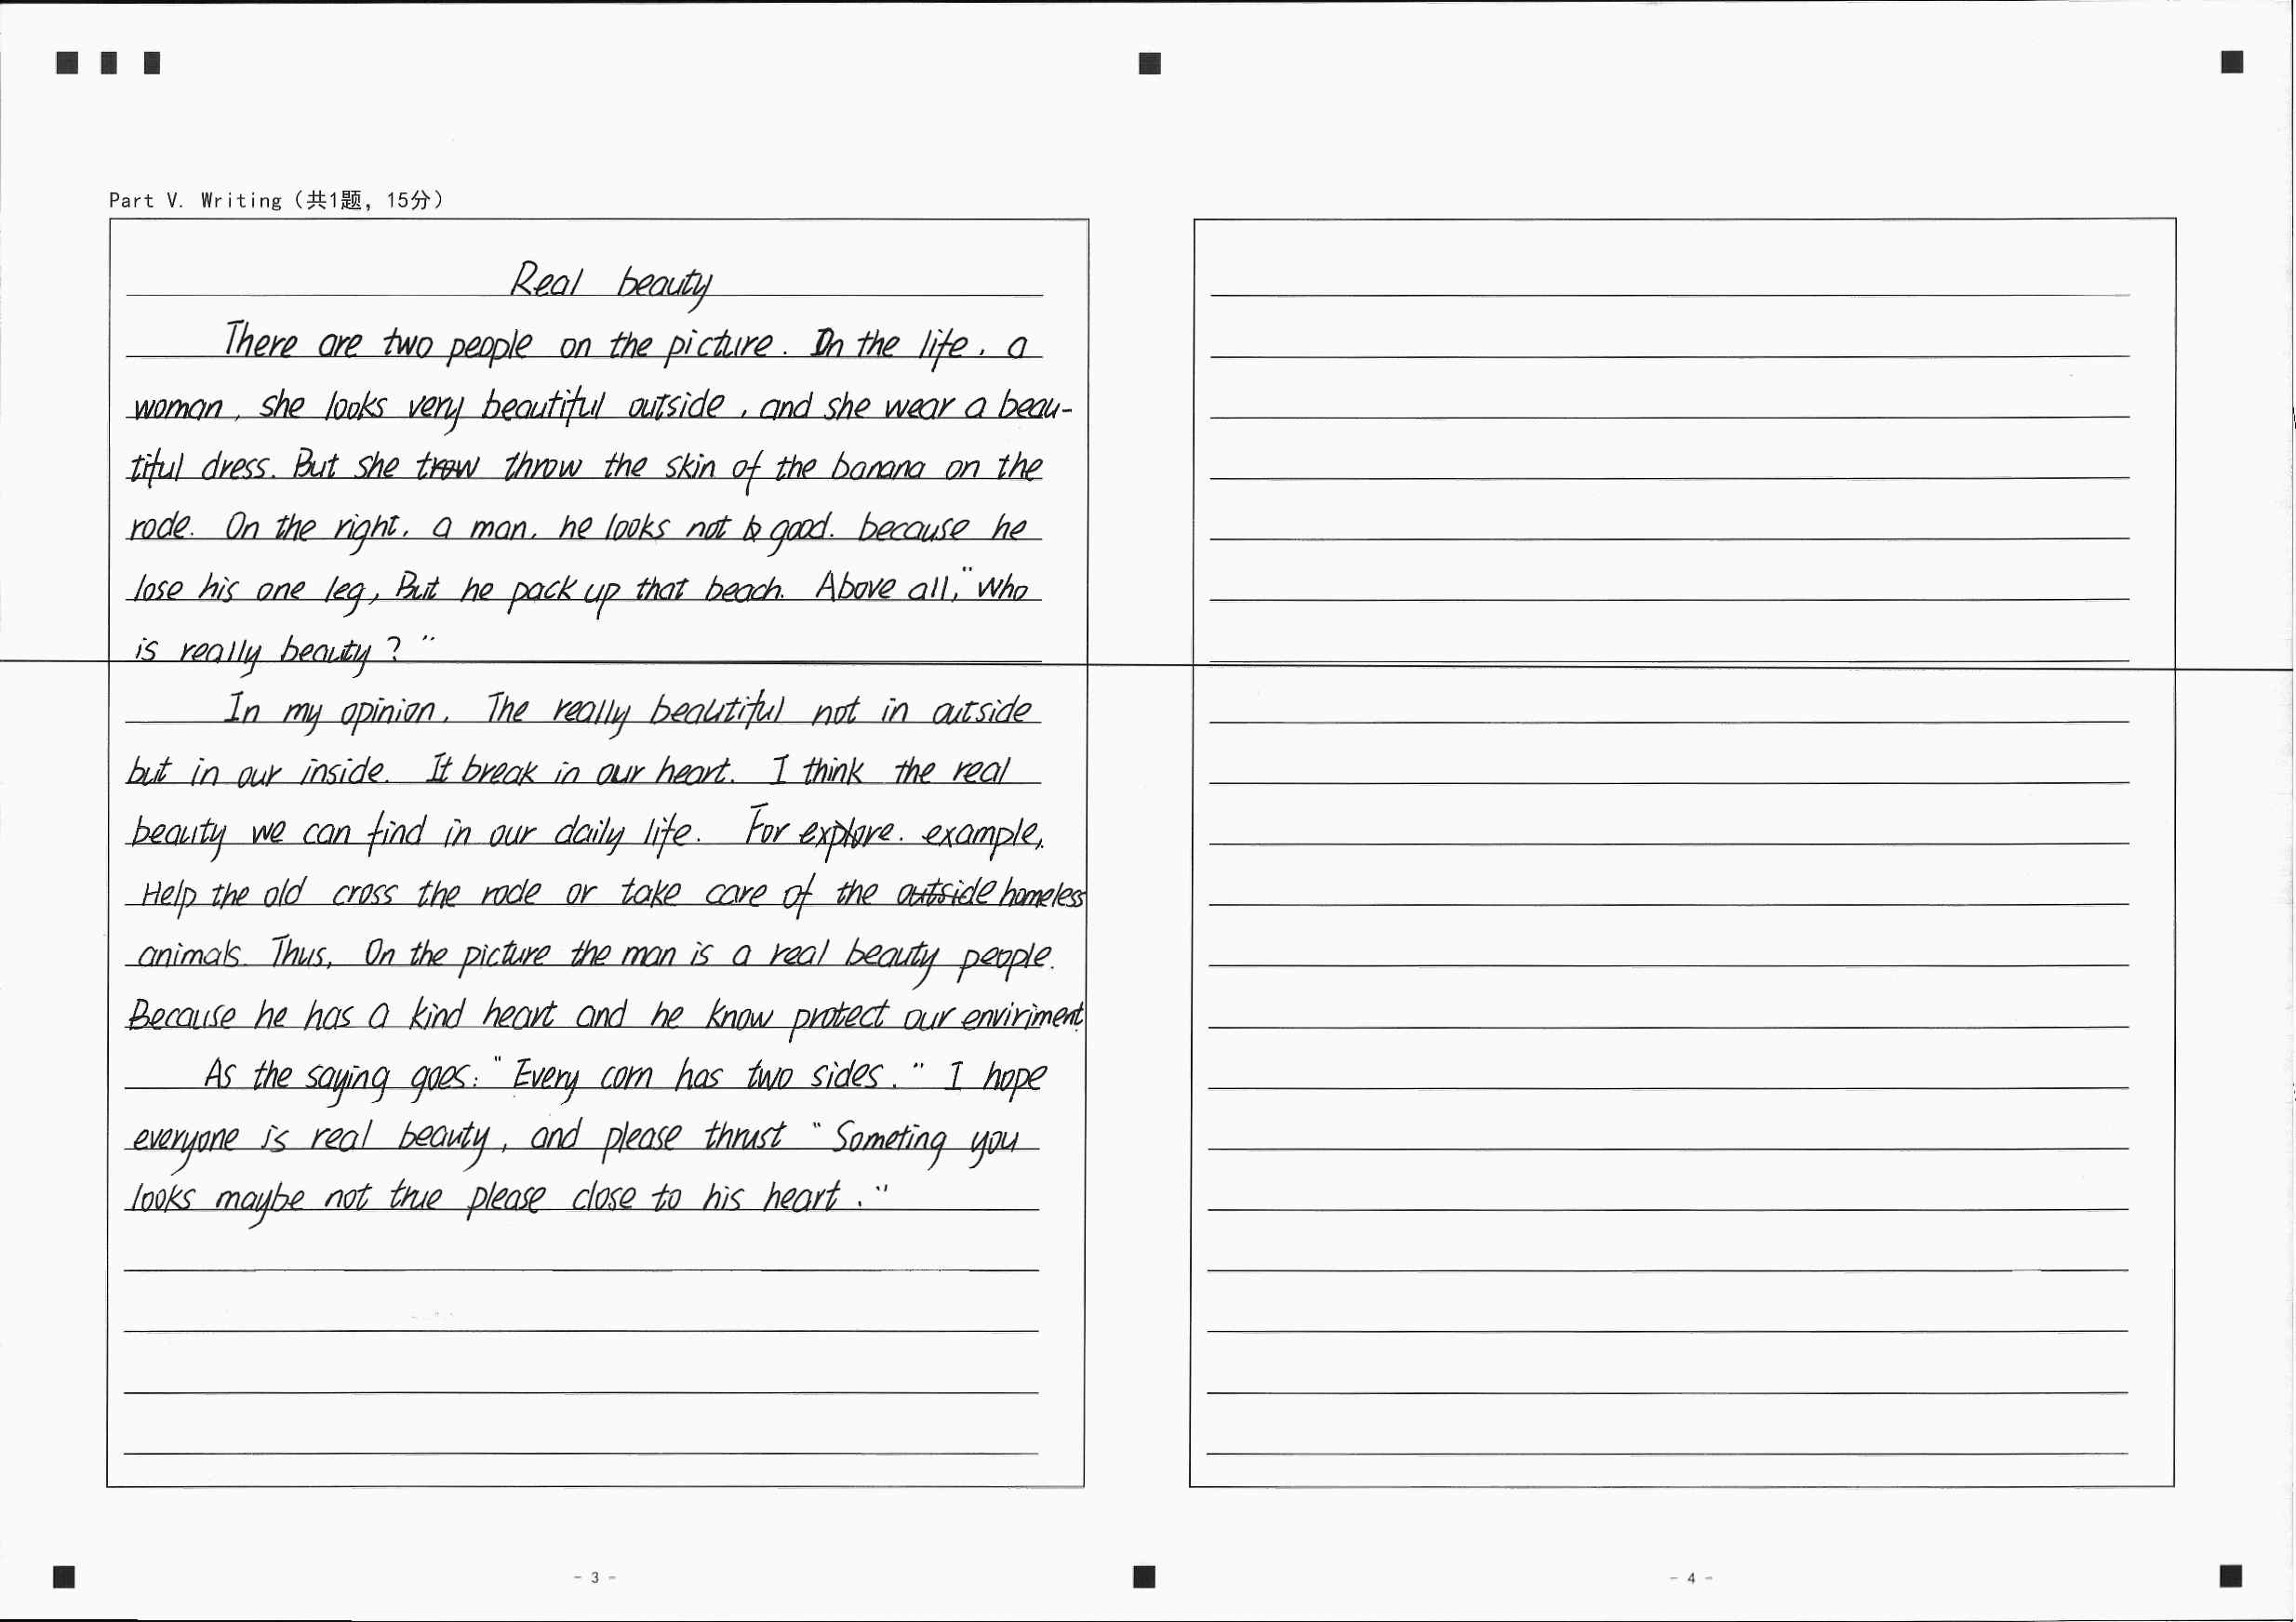 Part V. Writing (共1题, 15分)
Real beauty
There are two people on the picture. On the life, a
woman, she looks very beautiful outside, and she wear a beau-
tiful dress. But she trow throw the skin of the banana on the
rode. On the right, a man, he looks not good. because he
lose his one leg, But he pack up that beach. Above all, "who
is really beauty? "
In my opinion, The really beautiful not in outside
but in our inside. It break in our heart. I think the real
beauty we can find in our daily life. For explore. example,
Help the old cross the rode or take care of the outside homeless
animals. Thus, On the picture the man is a real beauty people.
Because he has a kind heart and he know protect our enviriment.
As the saying goes: "Every corn has two sides." I hope
everyone is real beauty, and please thrust "Someting you
looks maybe not true please close to his heart."
- 3 -
- 4 -